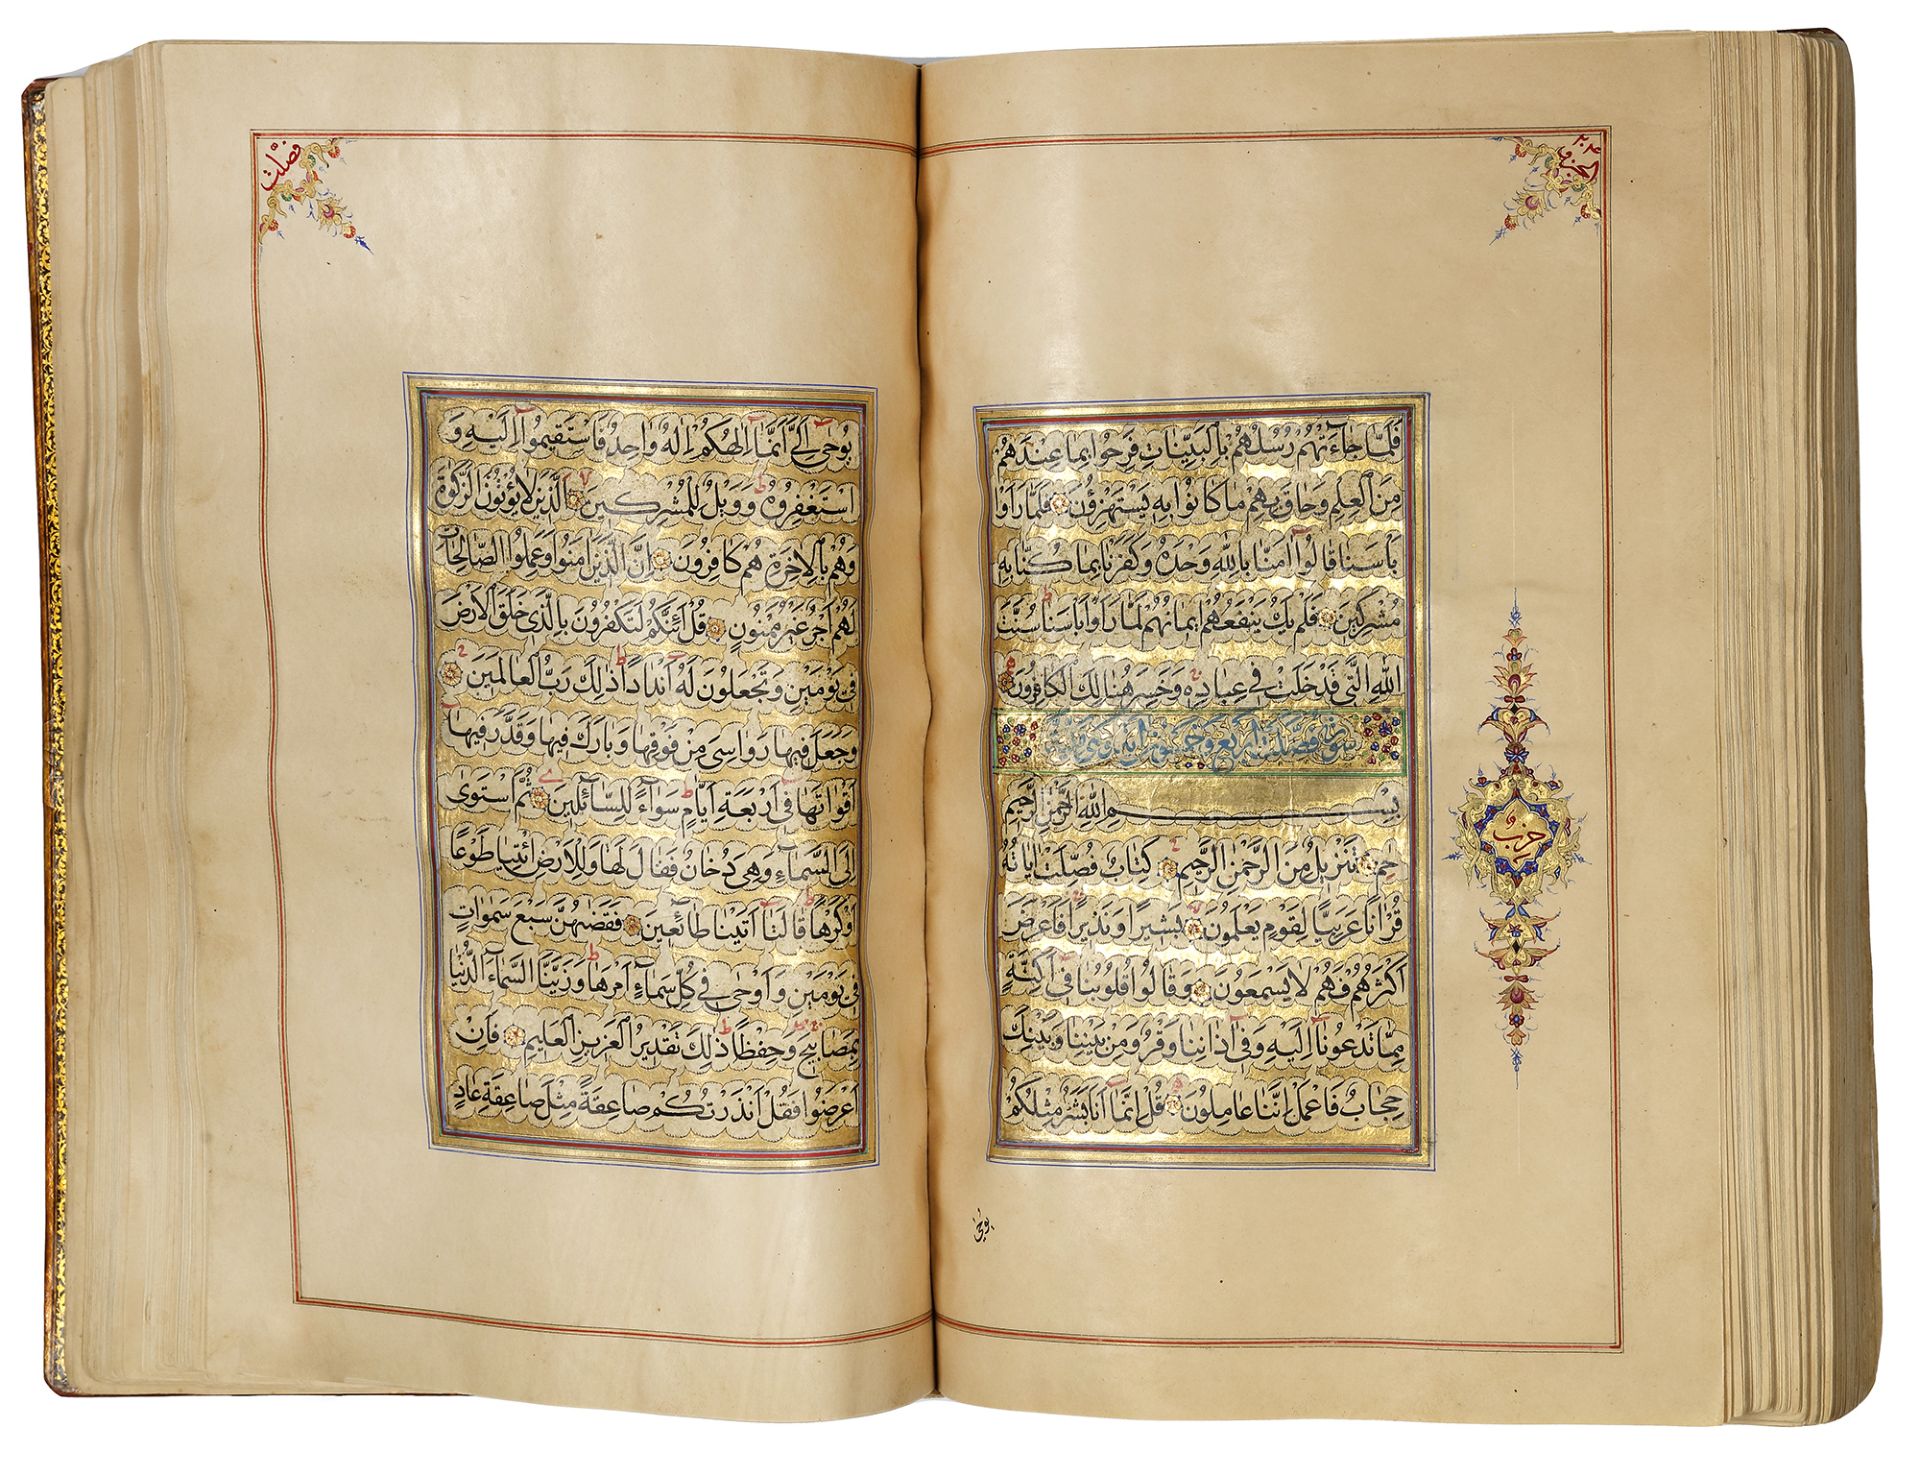 الجزو ٢٤
فَلَمَّا جَاءَتْهُمْ رُسُلُهُمْ بِالْبَيِّنَاتِ فَرِحُوا بِمَا عِنْدَهُمْ
مِنَ الْعِلْمِ وَحَاقَ بِهِمْ مَا كَانُوا بِهِ يَسْتَهْزِؤُنَ فَلَمَّا رَاَوْا
بَأْسَنَا قَالُوا آمَنَّا بِاللّٰهِ وَحْدَهُ وَكَفَرْنَا بِمَا كُنَّا بِهِ
مُشْرِكِينَ فَلَمْ يَكُ يَنْفَعُهُمْ ايمَانُهُمْ لَمَّا رَاَوْا بَأْسَنَا سُنَّتَ
اللّٰهِ الَّتِي قَدْ خَلَتْ فِي عِبَادِهِ وَخَسِرَ هُنَالِكَ الْكَافِرُونَ
سورة فصلت اربع وخمسون اية وهي مكية
بِسْمِ اللّٰهِ الرَّحْمٰنِ الرَّحِيمِ
حٰم تَنْزِيلٌ مِنَ الرَّحْمٰنِ الرَّحِيمِ كِتَابٌ فُصِّلَتْ اٰيَاتُهُ
قُرْاٰنًا عَرَبِيًّا لِقَوْمٍ يَعْلَمُونَ بَشِيرًا وَنَذِيرًا فَاَعْرَضَ
اَكْثَرُهُمْ فَهُمْ لَا يَسْمَعُونَ وَقَالُوا قُلُوبُنَا فِي اَكِنَّةٍ
مِمَّا تَدْعُونَا اِلَيْهِ وَفِي اٰذَانِنَا وَقْرٌ وَمِنْ بَيْنِنَا وَبَيْنِكَ
حِجَابٌ فَاعْمَلْ اِنَّنَا عَامِلُونَ قُلْ اِنَّمَا اَنَا بَشَرٌ مِثْلُكُمْ
حزب
يوحى
فصّلت
يُوحَى اِلَيَّ اَنَّمَا اِلٰهُكُمْ اِلٰهٌ وَاحِدٌ فَاسْتَقِيمُوا اِلَيْهِ وَ
اسْتَغْفِرُوهُ وَوَيْلٌ لِلْمُشْرِكِينَ الَّذِينَ لَا يُؤْتُونَ الزَّكٰوةَ
وَهُمْ بِالْاٰخِرَةِ هُمْ كَافِرُونَ اِنَّ الَّذِينَ اٰمَنُوا وَعَمِلُوا الصَّالِحَاتِ
لَهُمْ اَجْرٌ غَيْرُ مَمْنُونٍ قُلْ اَئِنَّكُمْ لَتَكْفُرُونَ بِالَّذِي خَلَقَ الْاَرْضَ
فِي يَوْمَيْنِ وَتَجْعَلُونَ لَهُ اَنْدَادًا ذٰلِكَ رَبُّ الْعَالَمِينَ
وَجَعَلَ فِيهَا رَوَاسِيَ مِنْ فَوْقِهَا وَبَارَكَ فِيهَا وَقَدَّرَ فِيهَا
اَقْوَاتَهَا فِي اَرْبَعَةِ اَيَّامٍ سَوَاءً لِلسَّائِلِينَ ثُمَّ اسْتَوَى
اِلَى السَّمَاءِ وَهِيَ دُخَانٌ فَقَالَ لَهَا وَلِلْاَرْضِ ائْتِيَا طَوْعًا
اَوْ كَرْهًا قَالَتَا اَتَيْنَا طَائِعِينَ فَقَضٰهُنَّ سَبْعَ سَمٰوَاتٍ
فِي يَوْمَيْنِ وَاَوْحٰى فِي كُلِّ سَمَاءٍ اَمْرَهَا وَزَيَّنَّا السَّمَاءَ الدُّنْيَا
بِمَصَابِيحَ وَحِفْظًا ذٰلِكَ تَقْدِيرُ الْعَزِيزِ الْعَلِيمِ فَاِنْ
اَعْرَضُوا فَقُلْ اَنْذَرْتُكُمْ صَاعِقَةً مِثْلَ صَاعِقَةِ عَادٍ